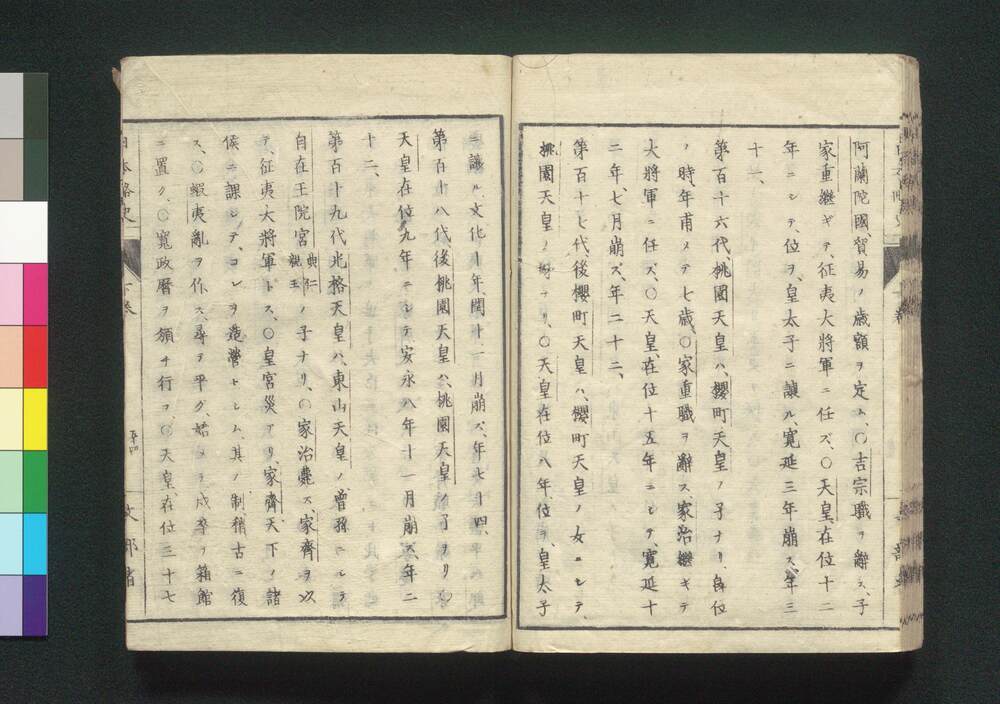 阿蘭陀國、貿易ノ歳額ヲ定ム、〇吉宗職ヲ辭ス、子
家重繼ギテ、征夷大將軍ニ任ズ、〇天皇、在位十二
年ニシテ、位ヲ、皇太子ニ讓ル、寛延三年崩ズ、年三
十一、
第百十六代、桃園天皇ハ、櫻町天皇ノ子ナリ、卽位
ノ時、年甫メテ七歳、〇家重職ヲ辭ス、家治繼ギテ
大將軍ニ任ズ、〇天皇、在位十五年ニシテ、寛延十
二年、七月崩ズ、年二十二、
第百十七代、後櫻町天皇ハ、櫻町天皇ノ女ニシテ、
桃園天皇ノ姉ナリ、〇天皇在位八年、位ヲ、皇太子
ニ讓ル、文化十年、閏十一月崩ズ、年七十四、
第百十八代、後桃園天皇ハ、桃園天皇ノ子ナリ、〇
天皇在位九年ニシテ、安永八年十一月崩ズ、年二
十二、
第百十九代光格天皇ハ、東山天皇ノ曾孫ニシテ
自在王院宮典仁親王ノ子ナリ、〇家治薨ズ、家齊ヲ以
テ、征夷大將軍トス、〇皇宮災アリ、家齊、天下ノ諸
侯ニ課シテ、コレヲ造營セシム、其ノ制、稽古ニ復
ス、〇蝦夷亂ヲ作ス、尋デ平グ、始メテ戍卒ヲ箱館
ニ置ク、〇寛政暦ヲ頒チ行フ、〇天皇、在位三十七
日本略史 下卷 文部省